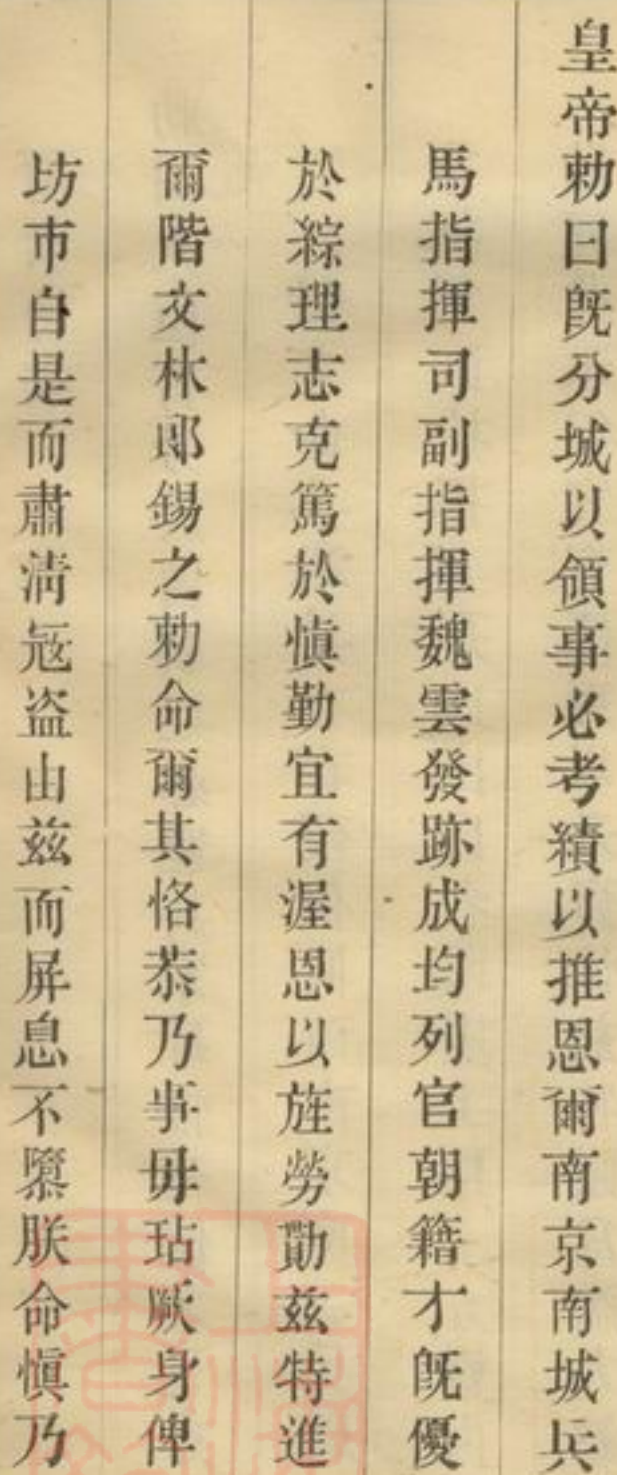 皇帝勅曰旣分城以領事必考績以推恩爾南京南城兵
馬指揮司副指揮魏雲發跡成均列官朝籍才旣優
於綜理志克篤於慎勤宜有渥恩以旌勞勩茲特進
爾階文林郎錫之勅命爾其恪恭乃事毋玷厥身俾
坊市自是而肅淸冦盗由兹而屏息不隳朕命愼乃